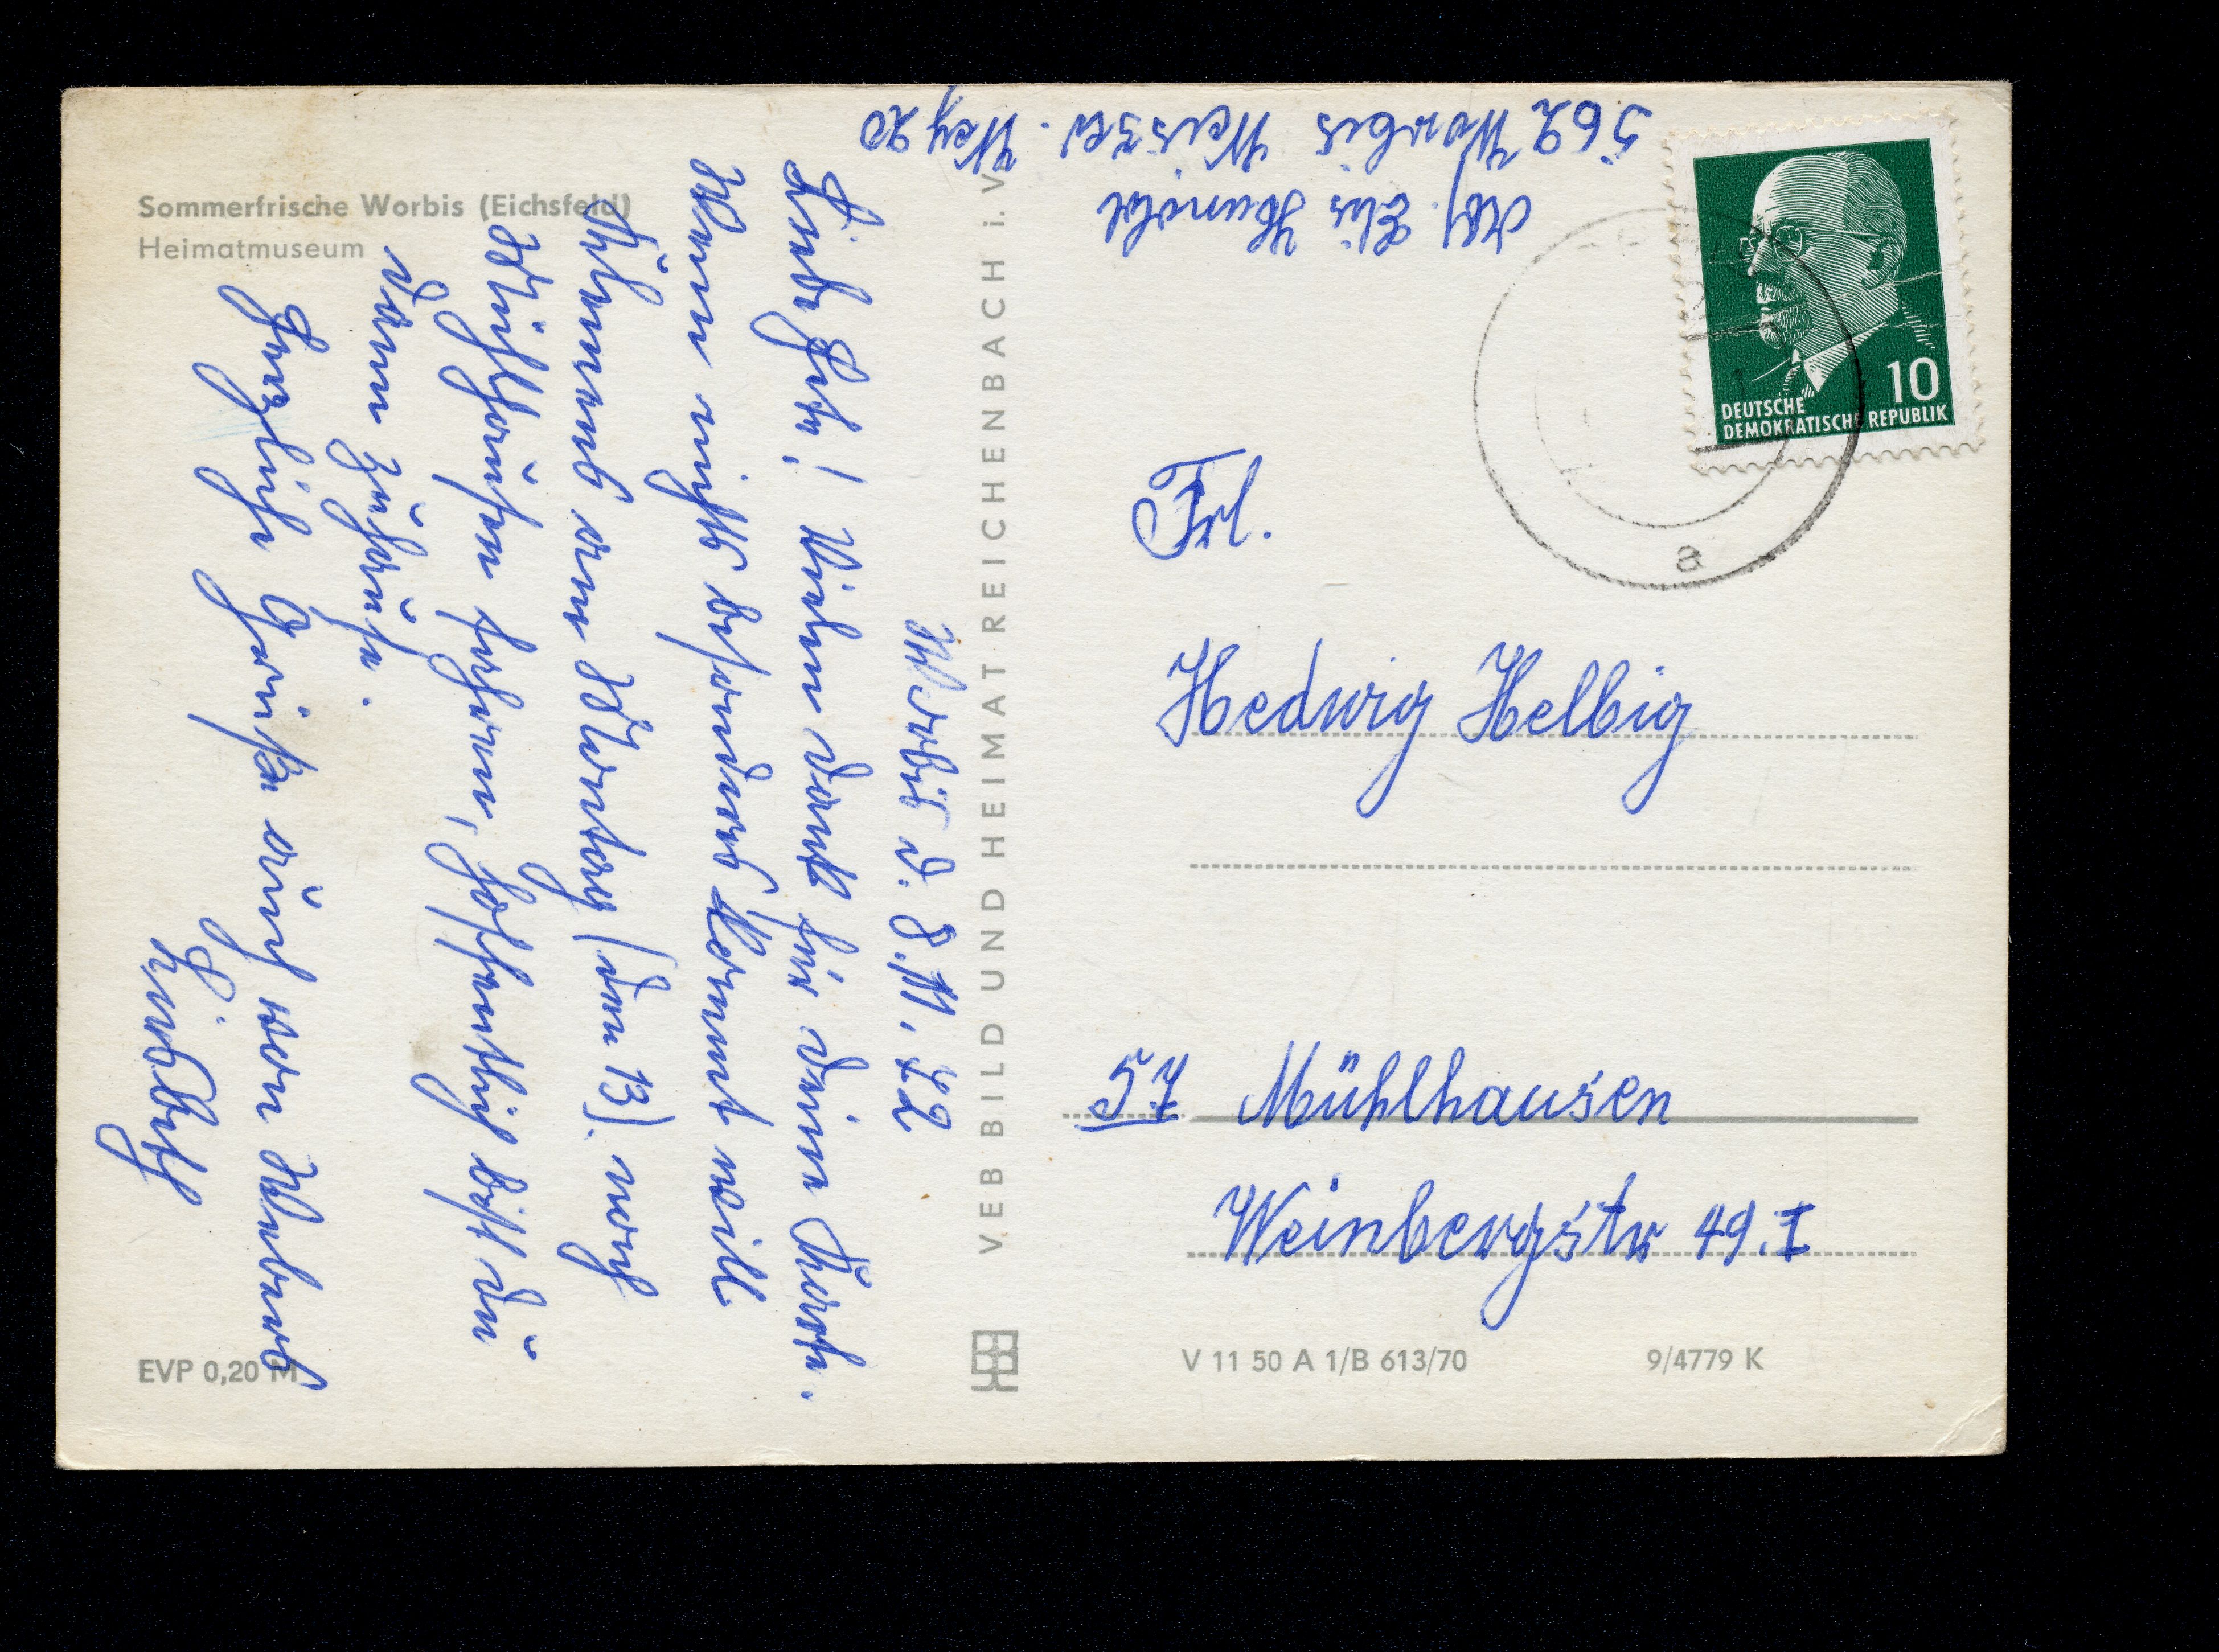 Sommerfrische Worbis (Eichsfeld)
Heimatmuseum
Worbis d. 8.11.72
Liebe Hete! Vielen Dank für deine Karte.
Wenn nichts besonders kommt will
Klemens am Montag (den 13). nach
Mühlhausen fahren, hoffentlich bist du
dann zuhause.
Herzliche Grüße auch von Klemens
Lisbeth
EVP 0,20 M
VEB BILD UND HEIMAT REICHENBACH i. V
Abs. Elis
562 Worbis Weg 20
DEUTSCHE
DEMOKRATISCHE REPUBLIK
10
a
Frl.
Hedwig Helbig
57 Mühlhausen
Weinbergstr 49.I
V 11 50 A 1/B 613/70
9/4779 K